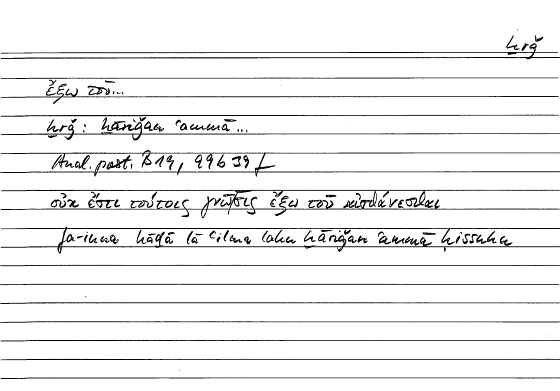 ḫrǧ
ἔξω τοῦ...
ḫrǧ: ḫāriǧan ʿammā...
Anal. post. B 19, 99b39 f
οὐκ ἔστι τούτοις γνῶσις ἔξω τοῦ αἰσθάνεσθαι
fa-inna hāḏā lā ʿilma lahu ḫāriǧan ʿammā ḥissuhu